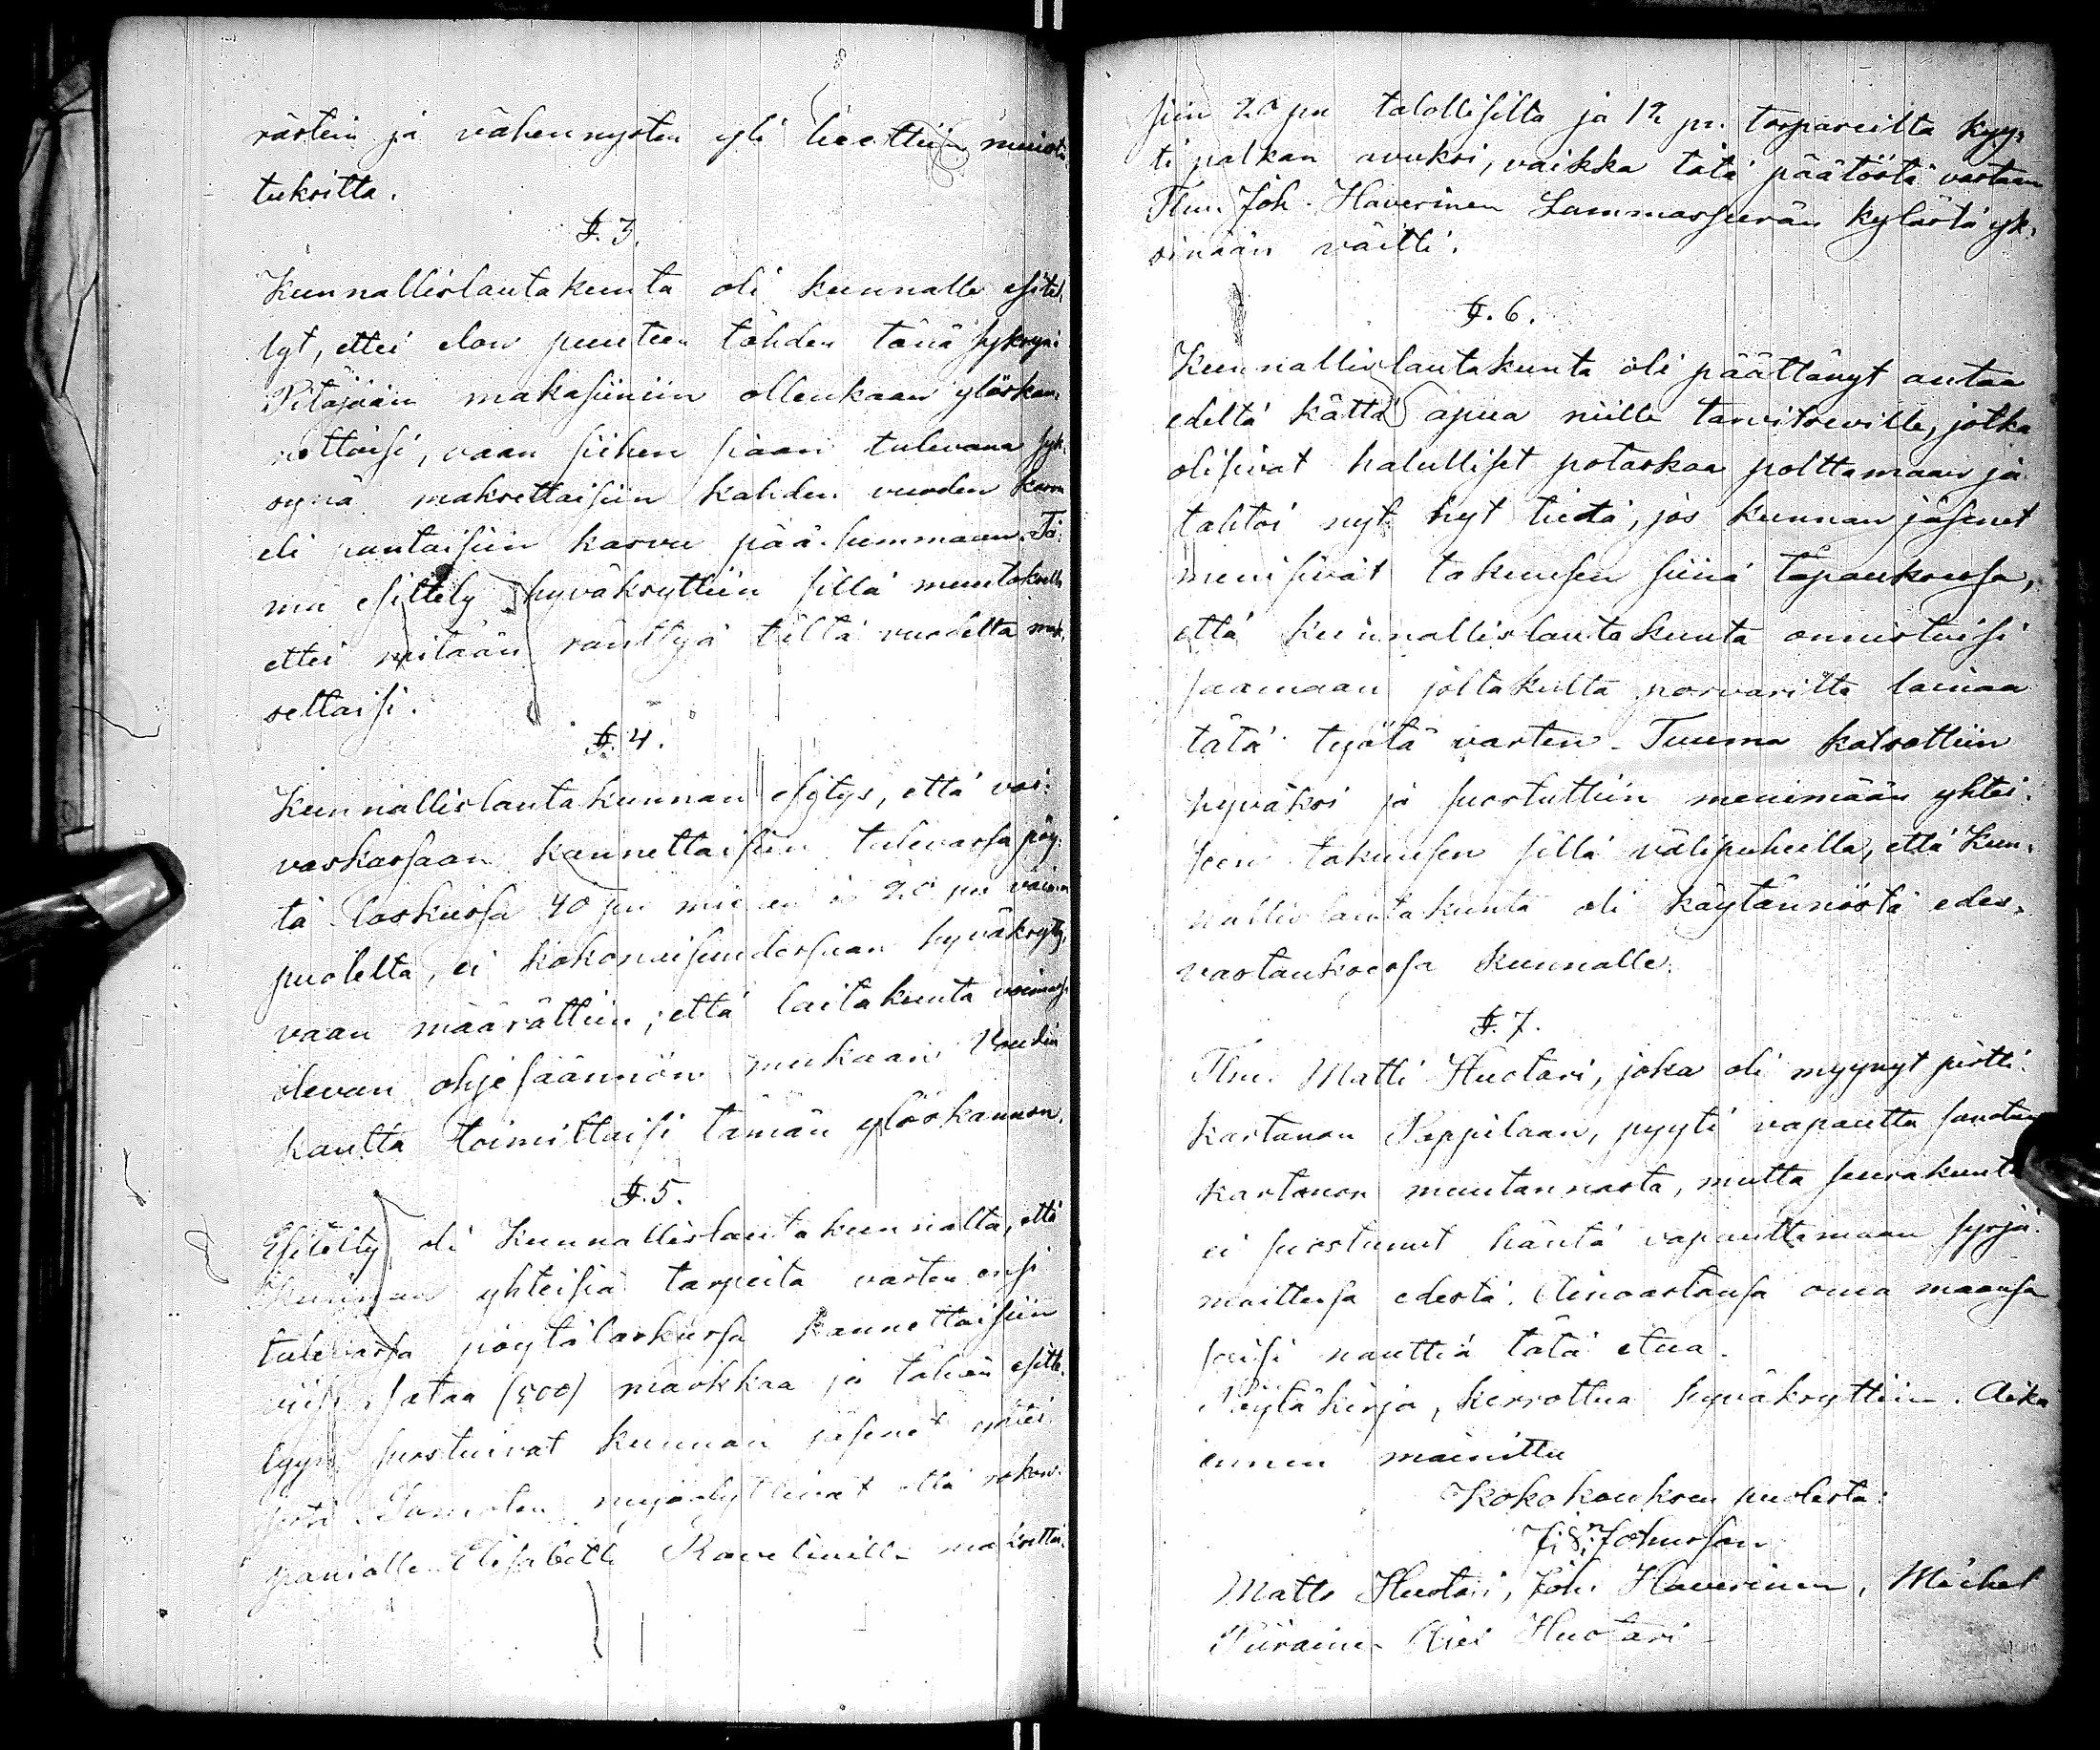 rästein ja vähennysten yli luettiin muistu
tuksitta.
§. 3.
Kunnallislautakunta oli kunnalle esitel,
lyt, ettei elon puuteen tähden tänä syksynä
Pitäjään makasiiniin ollenkaan ylöskan,
nettaisi, vaan siihen siaan tulevana syk.
synä maksettaisiin kahden vuoden kasvu
eli pantaisiin kasvu pää-summaan. Tä
mä esittely hyväksyttiin sillä muutoksella
ettei mitään ränttyä tältä vuodelta mak,
settaisi.
§. 4.
Kunnallislautakunnan esitys, että vai,
vaskassaan kannettaisiin tulevassa pöy
tä laskussa 40 pn miehen ja 20 pn vaimon
puolelta, ei kokonaisuudessaan hyväksytty,
vaan määrättiin, että laitakunta voimassa
olevan ohjesäännön mukaan Voudin
kautta toimittaisi tämän ylöskannon.
§. 5.
Esitelty oli Kunnallislautakunnalta, että
Kunnan yhteisiä tarpeita varten ensi
tulevassa pöytälaskussa kannettaisiin
viisi sataa (500) markkaa ja tähän esitte,
lyyn suostuivat kunnan jäsenet yhtei
sesti. Samaten myöDdyttivät että rokon,
paniälle Elisabeth Ravelinille maksettai,
siin 20 pn talollisilta ja 12 pn. torpareilta kyy,
ti palkan avuksi, vaikka tätä päätöstä vastaan
Tlm. Joh. Haverinen Lammasperän kylästä yk,
sinään väitti.
§. 6.
Kunnallislautakunta oli päättänyt antaa
edeltä kättä apua niille tarvitseville, jotka
olisivat halulliset potaskaa polttamaan ja
tahtoi nyt hyt tietä, jos kunnan jäsenet
menisivät takuusen siinä tapauksessa,
että kunnallislautakunta onnistuisi
saamaan joltakulta porvarilta lainaa
tätä työtä varten. Tuuma katsottiin
hyväksi ja suostuttiin menimään yhtei,
seen takuusen sillä välipuheella, että Kun,
nallislautakunta oli käytännöstä edes,
vastauksessa Kunnalle.
§. 7.
Tlm. Matti Huotari, joka oli myynyt pirtti,
kartanon Seppilaan, pyyti vapautta sanotun
kartanon muutannasta, mutta seurakunta
ei suostunut häntä vapauttamaan syrjä,
maittensa edestä. Ainoastansa oma maansa
saisi nauttia tätä etua.
Pöytäkirja, kerrottua hyväksyttiin. Aika
ennen mainittu
Kokokouksen puolesta:
Johnsson
Matts Huotari, Joh. Haverinen, Michel
Piirainen Huotari